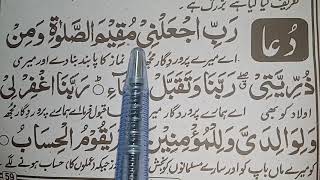 تعریف کیا گیا ہے بزرگ ہے
دُعا
رَبِّ اجْعَلْنِیْ مُقِیْمَ الصَّلٰوةِ وَمِنْ
اے میرے پروردگار مجھے نماز کا پابند بنا دے اور میری
ذُرِّیَّتِیْ رَبَّنَا وَتَقَبَّلْ رَبَّنَا اغْفِرْ لِیْ
اولاد کو بھی اے ہمارے پروردگار قبول فرما اے ہمارے پروردگار مجھ
وَلِوَالِدَیَّ وَلِلْمُؤْمِنِیْنَ یَوْمَ یَقُوْمُ الْحِسَابُ
کو میرے ماں باپ کو اور سارے مسلمانوں کو بخش جبکہ (عملوں کا) حساب ہونے لگے
59